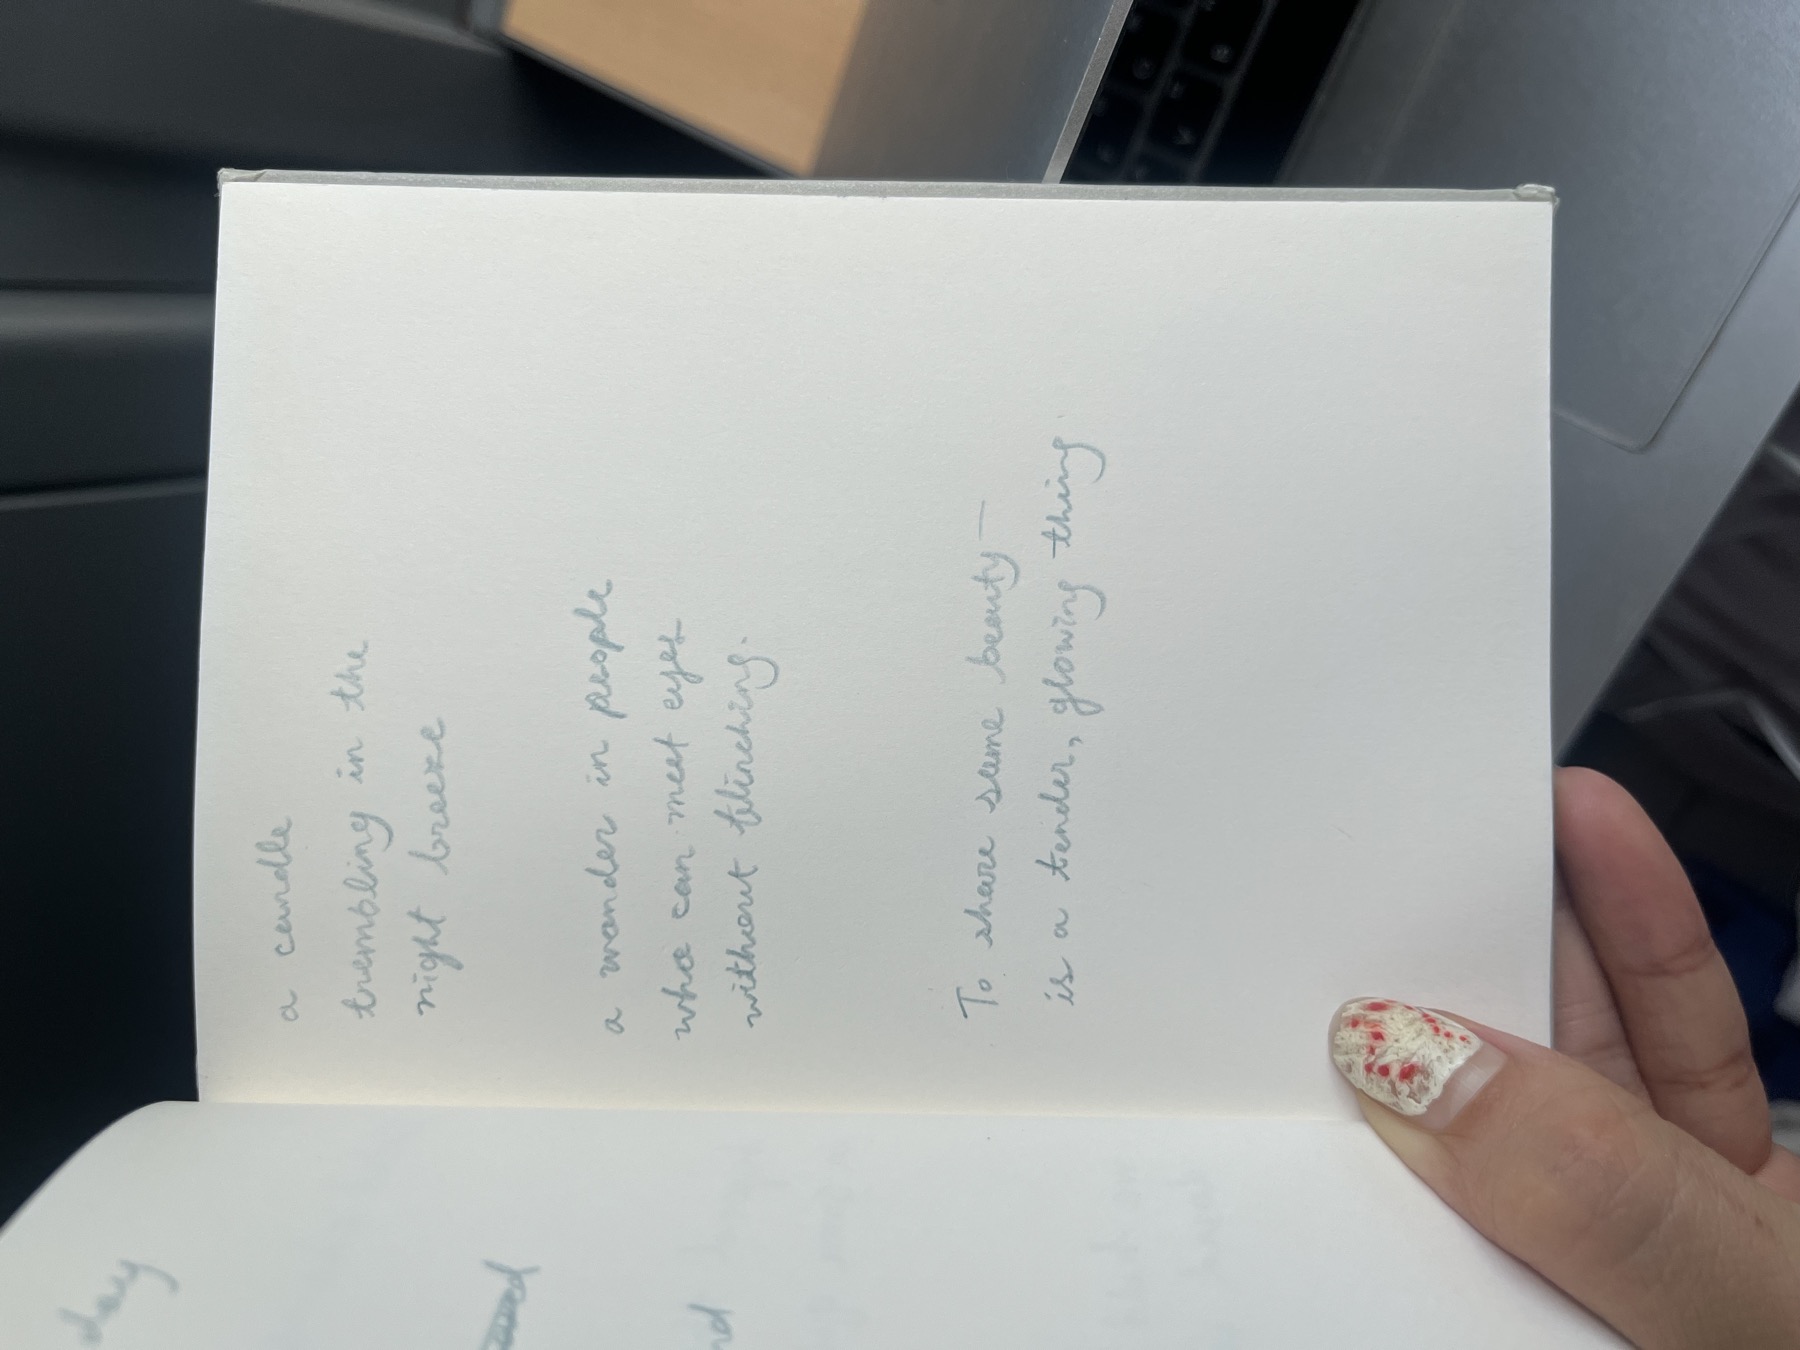 a candle
trembling in the
night breeze
a wonder in people
who can meet eyes
without flinching.
To share some beauty —
is a tender, glowing thing.
day